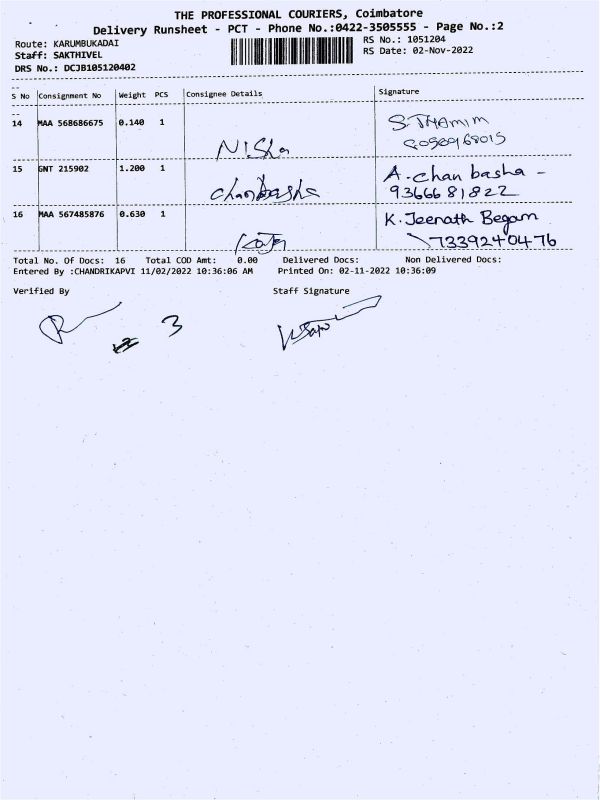 THE PROFESSIONAL COURIERS, Coimbatore
Delivery Runsheet - PCT - Phone No.:0422-3505555 - Page No.:2
Route: KARUMBUKADAI
RS No.: 1051204
Staff: SAKTHIVEL
RS Date: 02-Nov-2022
DRS No.: DCJB105120402
S No Consignment No Weight PCS Consignee Details Signature
14 MAA 568686675 0.140 1 Nisha S.THAMIM
15 GNT 215902 1.200 1 chanbasha A.chan basha -
9366681822
16 MAA 567485876 0.630 1 K.Jeenath Begam
7339240476
Total No. Of Docs: 16 Total COD Amt: 0.00 Delivered Docs: Non Delivered Docs:
Entered By :CHANDRIKAPVI 11/02/2022 10:36:06 AM Printed On: 02-11-2022 10:36:09
Verified By Staff Signature
3